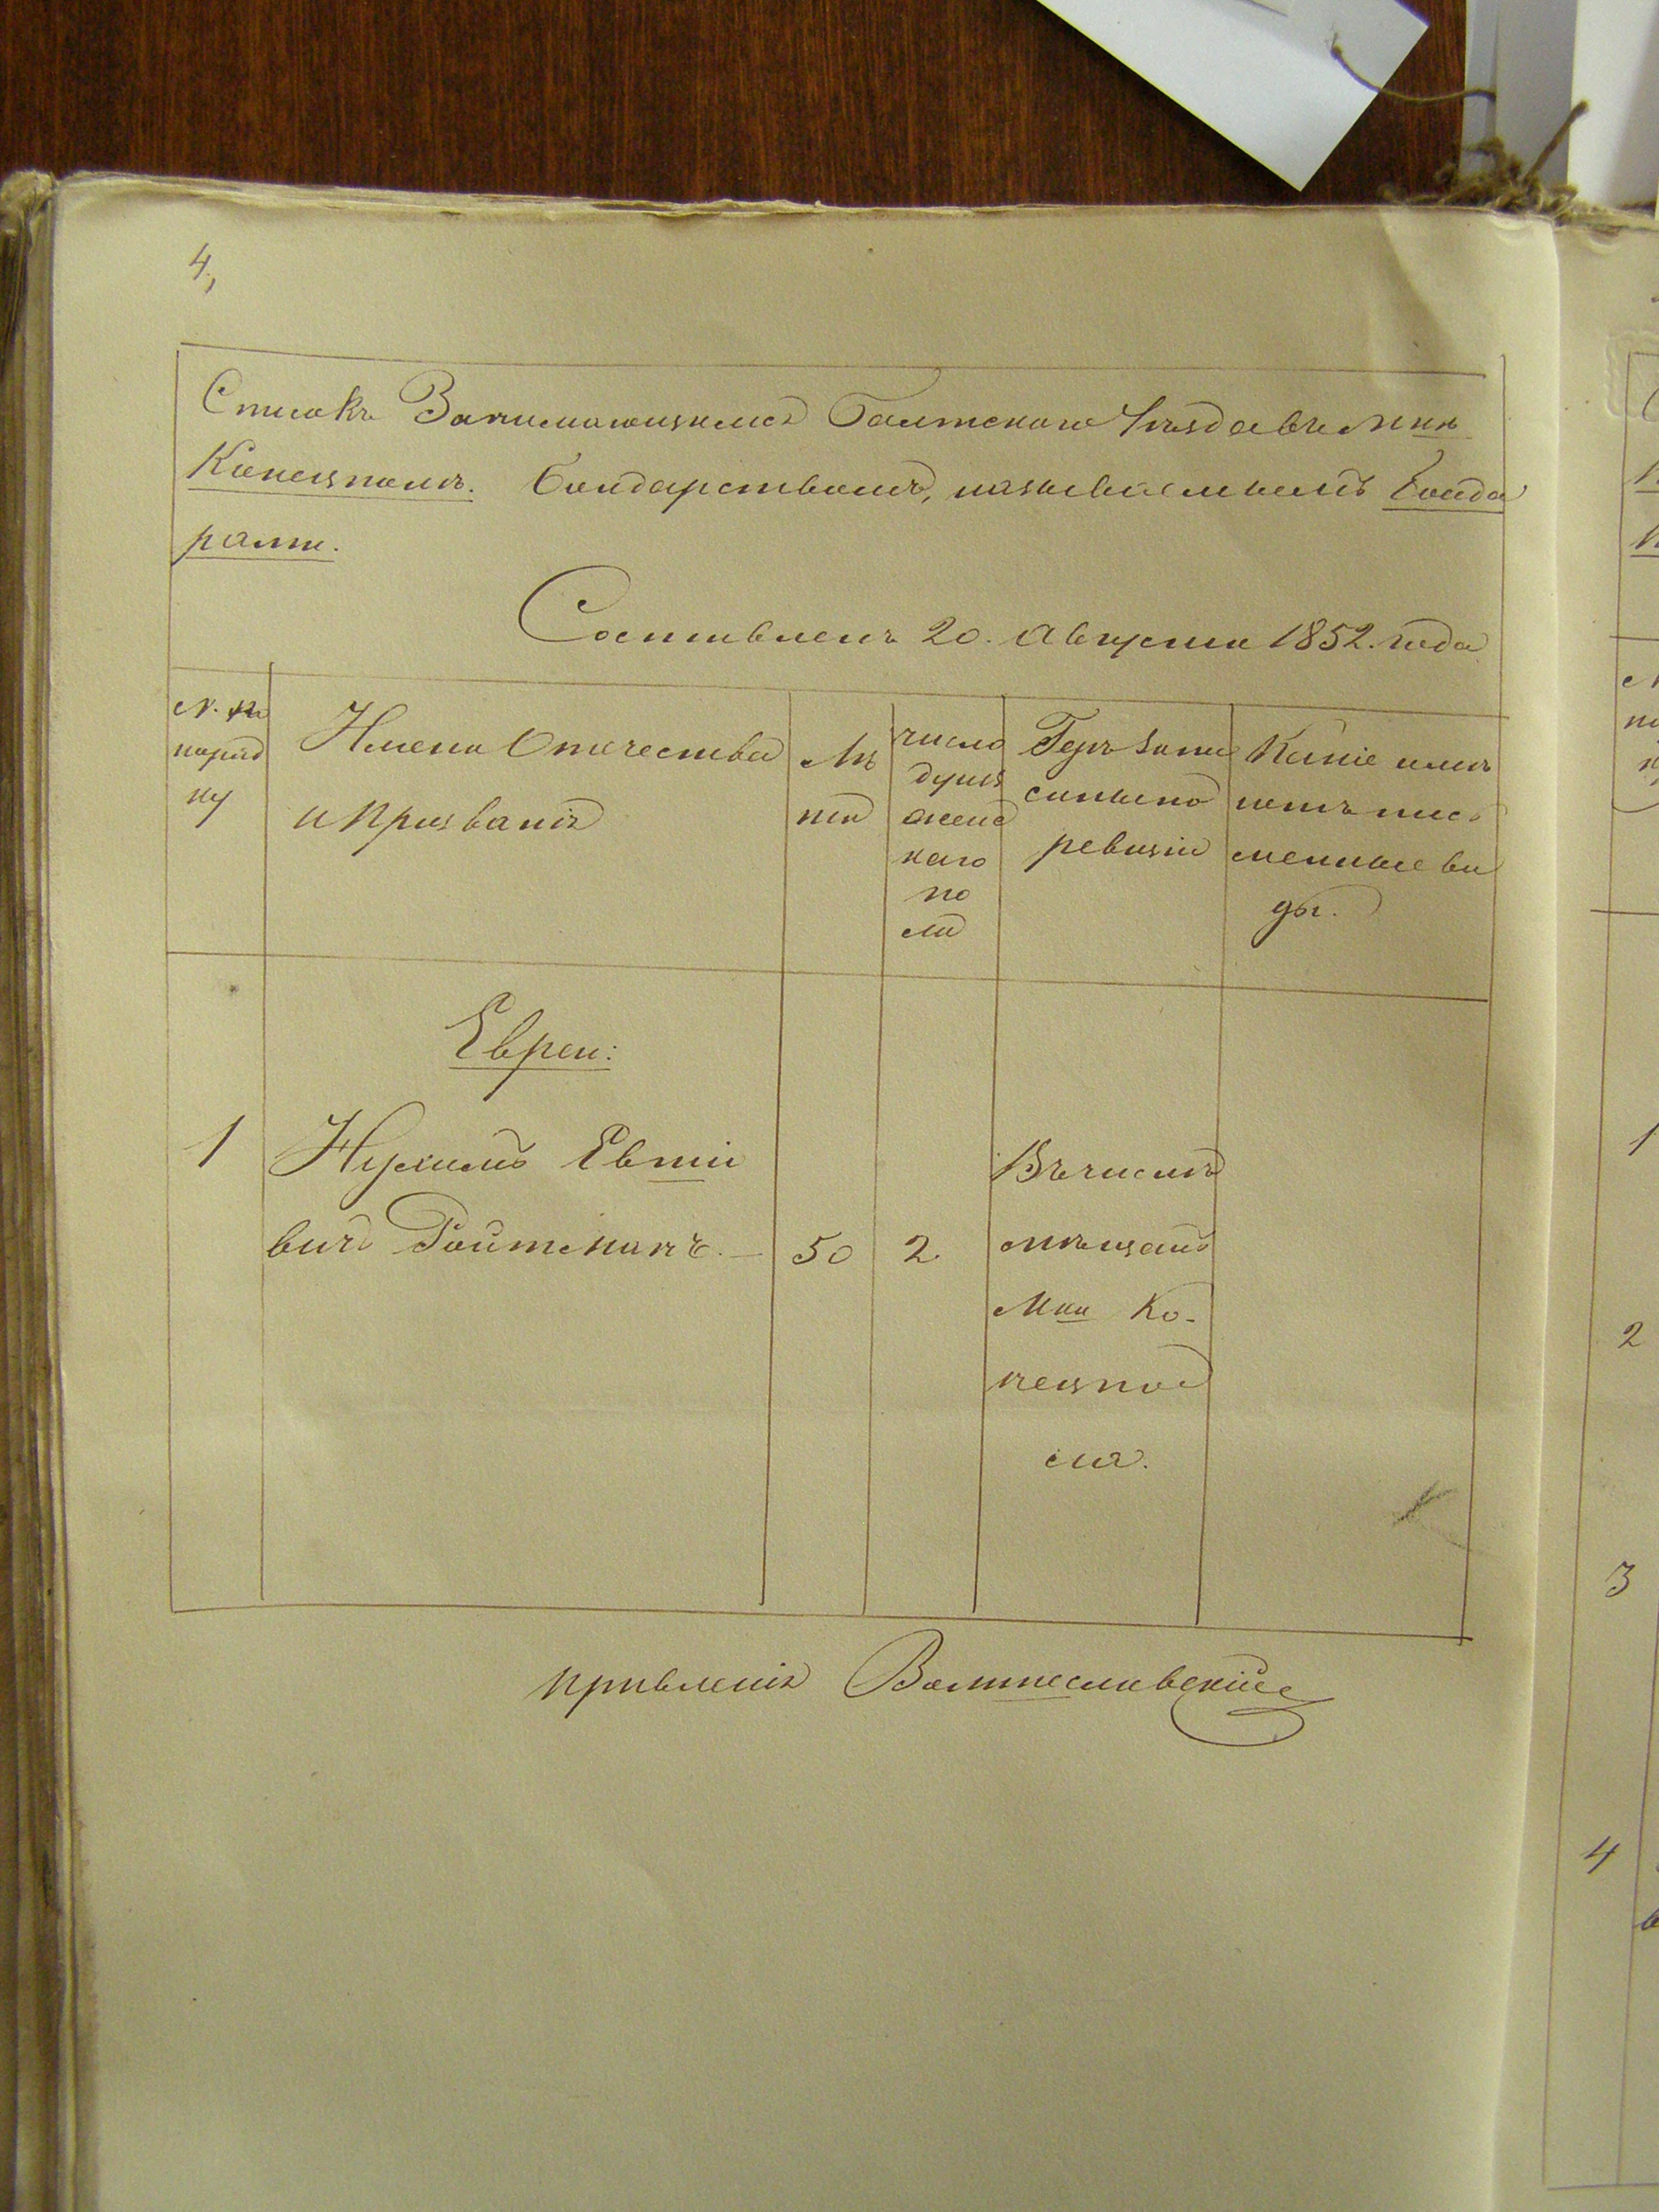 4,
Списокъ Занимающимся Балтскаго Уѣзда въ Мкѣ
Конецполѣ. Бондарствомъ, называемымъ Бонда
рами.
Составленъ 20. Августа 1852. года
№. по
поряд
ку
Имена Отчества
и Прозванія
Лѣ
та
число
душъ
женс
каго
по
ла
Гдѣ запи
саны по
ревизіи
Какіе имѣ
ютъ пис
менные ви
ды.
Евреи:
1
Нухимъ Евші
вичъ Ройтманъ. — 50 2.
Въ числѣ
мѣщанъ
Мка Ко-
нецпо
ля.
правленія
1
2
3
4